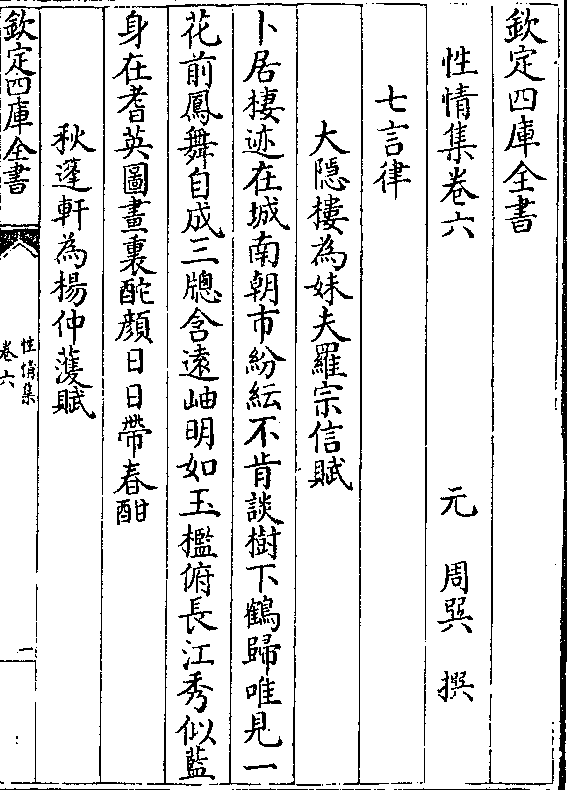 欽定四庫全書
性情集卷六
元 周巽 撰
七言律
大隱樓為妹夫羅宗信賦
卜居棲迹在城南朝市紛紜不肯談樹下鶴歸唯見一
花前鳳舞自成三牕含遠岫明如玉檻俯長江秀似藍
身在耆英圖畫裏酡顔日日帶春酣
秋蓬軒為楊仲䕶賦
欽定四庫全書
性情集
卷六
一